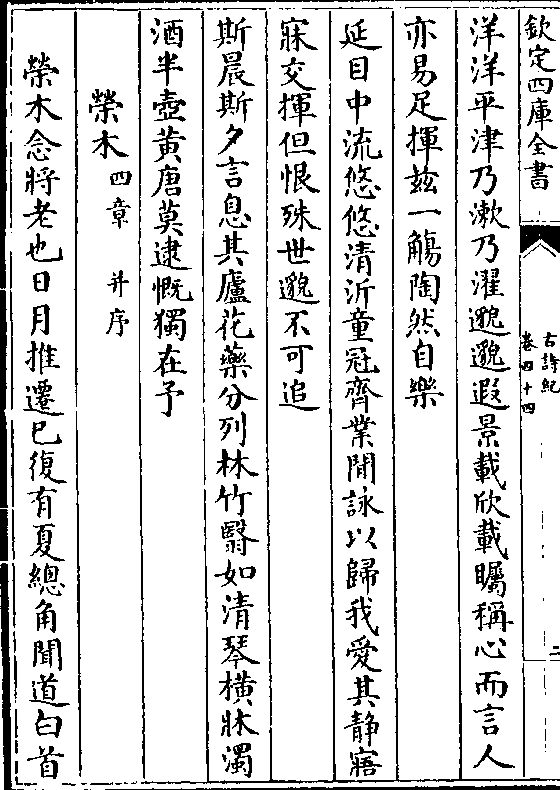 欽定四庫全書
古詩紀
卷四十四
二
洋洋平津乃漱乃濯邈邈遐景載欣載矚稱心而言人
亦易足揮兹一觴陶然自樂
延目中流悠悠清沂童冠齊業閒詠以歸我愛其静寤
寐交揮但恨殊世邈不可追
斯晨斯夕言息其廬花藥分列林竹翳如清琴橫牀濁
酒半壺黄唐莫逮慨獨在予
榮木四章 并序
榮木念將老也日月推遷已復有夏總角聞道白首